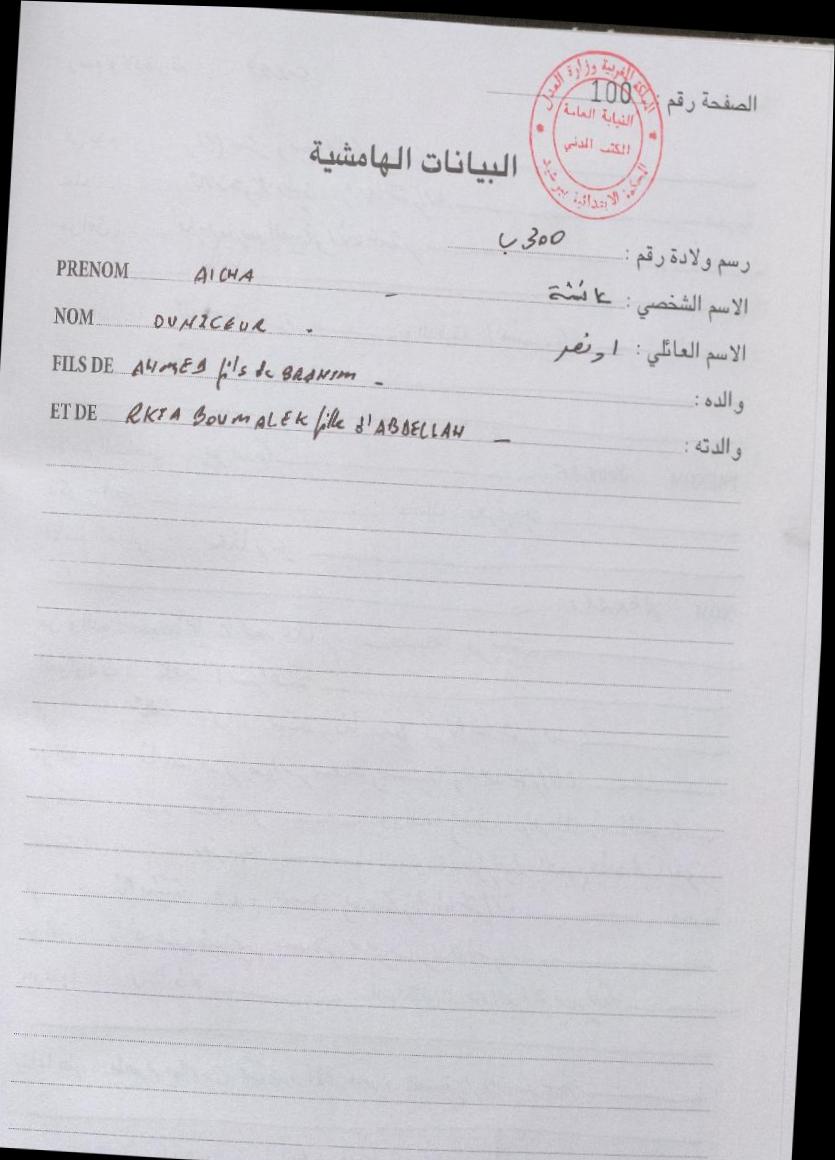 الصفحة رقم : 100
المملكة المغربية وزارة العدل
النيابة العامة
المكتب المدني
المحكمة الابتدائية ببرشيد
البيانات الهامشية
رسم ولادة رقم : 300 ب
الاسم الشخصي : عائشة
PRENOM AICHA -
الاسم العائلي :
NOM .
والده :
FILS DE AHMED fils de BRAHIM -
والدته :
ET DE RKIA BOUMALEK fille d'ABDELLAH -